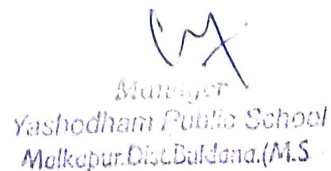 Manager
Yashodham Public School
Malkapur.Dist.Buldana.(M.S